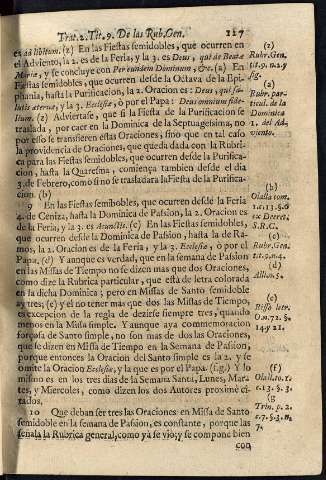 Trat.2. Tit.9. De las Rub.Gen. 227
es ad libitum. (z) En las Fiestas semidobles, que ocurren en
el Adviento, la 2. es de la Feria, y la 3. es Deus, qui de Beatæ
Mariæ, y se concluye con Per eundem Dominum, &c. (a) En
las Fiestas semidobles, que ocurren desde la Octava de la Epi-
phania, hasta la Purificacion, la 2. Oracion es: Deus, qui sa-
lutis æternæ, y la 3. Ecclesiæ, ò por el Papa: Deus omnium fide-
lium. (z) Adviertase, que si la Fiesta de la Purificacion se
traslada, por caer en la Dominica de la Septuagesima, no
por esso se transfieren estas Oraciones, sino que en tal caso
la providencia de Oraciones, que queda dada con la Rubri-
ca para las Fiestas semidobles, que ocurren desde la Purifica-
cion, hasta la Quaresma, comiença tambien desde el dia
3. de Febrero, como si no se trasladara la Fiesta de la Purifica-
cion. (b)
9 En las Fiestas semidobles, que ocurren desde la Feria
4. de Ceniza, hasta la Dominica de Passion, la 2. Oracion es
de la Feria, y la 3. es Acunctis. (c) En las Fiestas semidobles, que
ocurren desde la Dominica de Passion, hasta la de Ra-
mos, la 2. Oracion es de la Feria, y la 3. Ecclesiæ, ò por el
Papa. (d) Y aunque es verdad, que en la semana de Passion
en las Missas de Tiempo no se dizen mas que dos Oraciones,
como dize la Rubrica particular, que està de letra colorada
en la dicha Dominica; pero en Missas de Santo semidoble
ay tres; (e) y el no tener mas que dos las Missas de Tiempo,
es excepcion de la regla de dezirse siempre tres, quando
menos en la Missa simple. Y aunque aya commemoracion
forçosa de Santo simple, no son mas de dos las Oraciones,
que se dizen en Missa de Tiempo en la Semana de Passion,
porque entonces la Oracion del Santo simple es la 2. y se
omite la Oracion Ecclesiæ, y la que es por el Papa. (f.g.) Y lo
mismo es en los tres dias de la Semana Santa, Lunes, Mar-
tes, y Miercoles, como dizen los dos Autores proxime ci-
tados.
10 Que deban ser tres las Oraciones en Missa de Santo
semidoble en la semana de Passion, es constante, porque las
señala la Rubrica general, como ya se vio; y se compone bien
con
(z)
Rubr. Gen.
tit.9. n.2. y
sig.
(z)
Rubr. par-
ticul. de la
Dominica
1. del Ad-
viento.
(b)
Olalla tom.
ex Decret.
S.R.C.
(c)
Rubr. Gen.
tit.9. n.4.
(d)
(e)
14. y 21.
(f)
Olall. to. 1.
c.13. §.3.
(g
7.